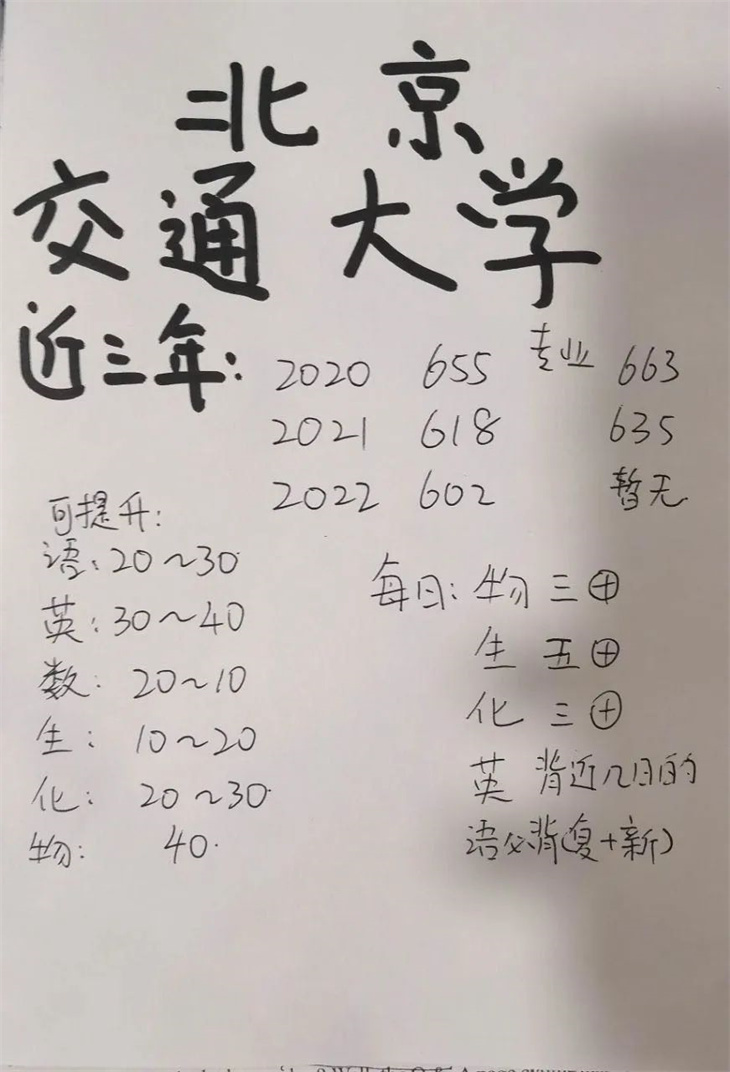 北京
交通大学
近三年:
2020 655 专业 663
2021 618 635
2022 602 暂无
可提升:
语: 20~30
英: 30~40
数: 20~10
生: 10~20
化: 20~30
物: 40
每日: 物 三⊕
生 五⊕
化 三⊕
英 背近几日的
语必背(复+新)